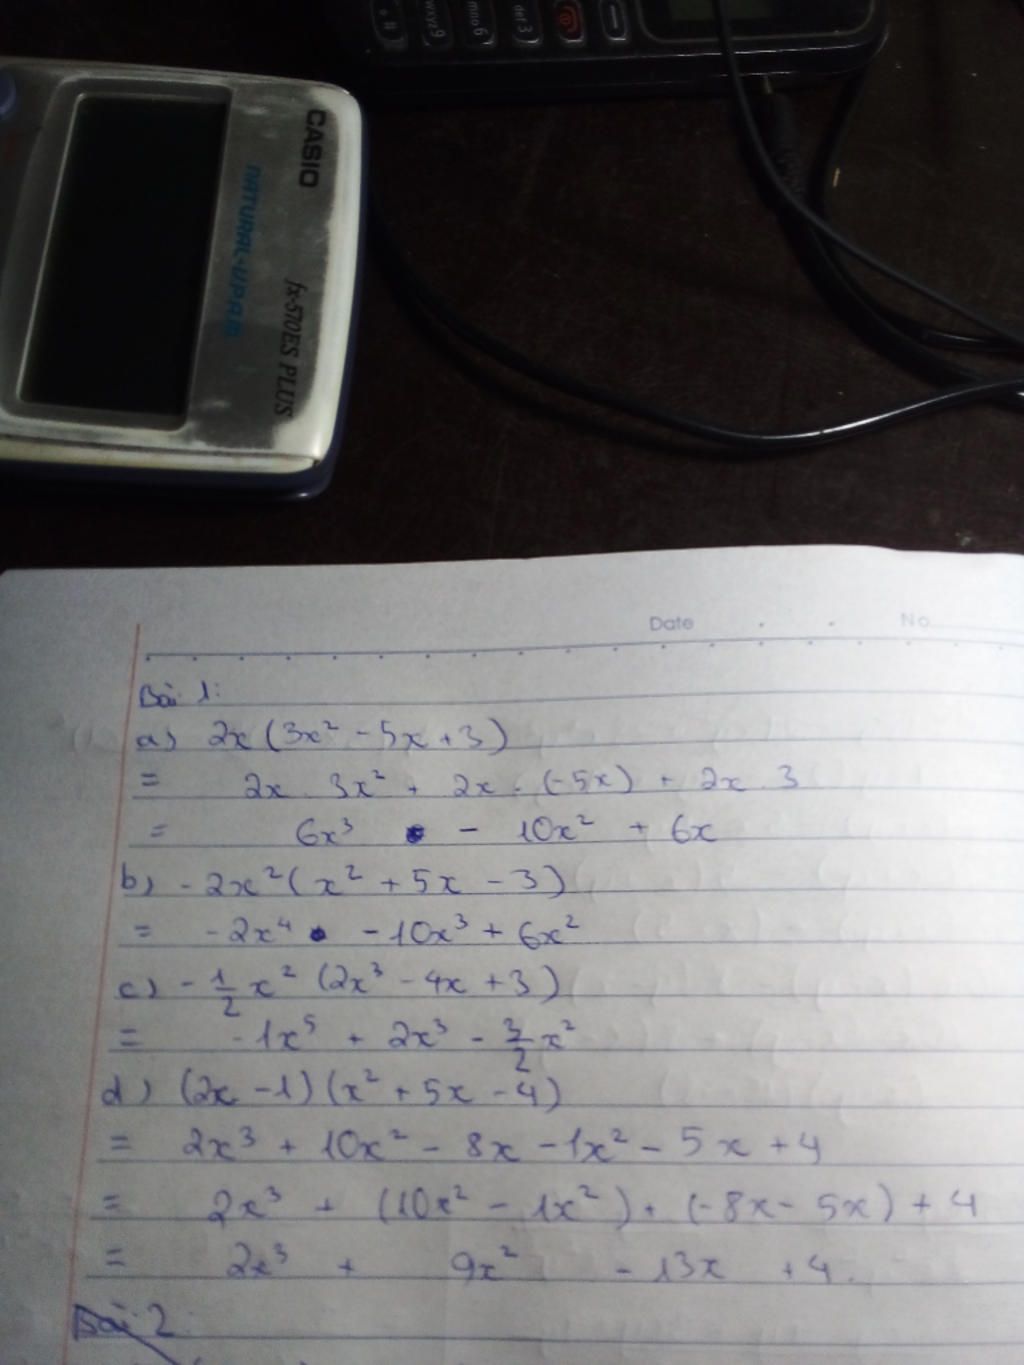 * #
wxyz9
mno6
def3
CASIO
NATURAL-V.P.A.M.
fx-570ES PLUS
Date . . No
Bài 1:
a) 2x(3x² - 5x + 3)
= 2x . 3x² + 2x . (-5x) + 2x . 3
= 6x³ - 10x² + 6x
b) -2x²(x² + 5x - 3)
= -2x⁴ - 10x³ + 6x²
c) -1/2 x² (2x³ - 4x + 3)
= -1x⁵ + 2x³ - 3/2 x²
d) (2x - 1)(x² + 5x - 4)
= 2x³ + 10x² - 8x - 1x² - 5x + 4
= 2x³ + (10x² - 1x²) + (-8x - 5x) + 4
= 2x³ + 9x² - 13x + 4.
Bài 2: